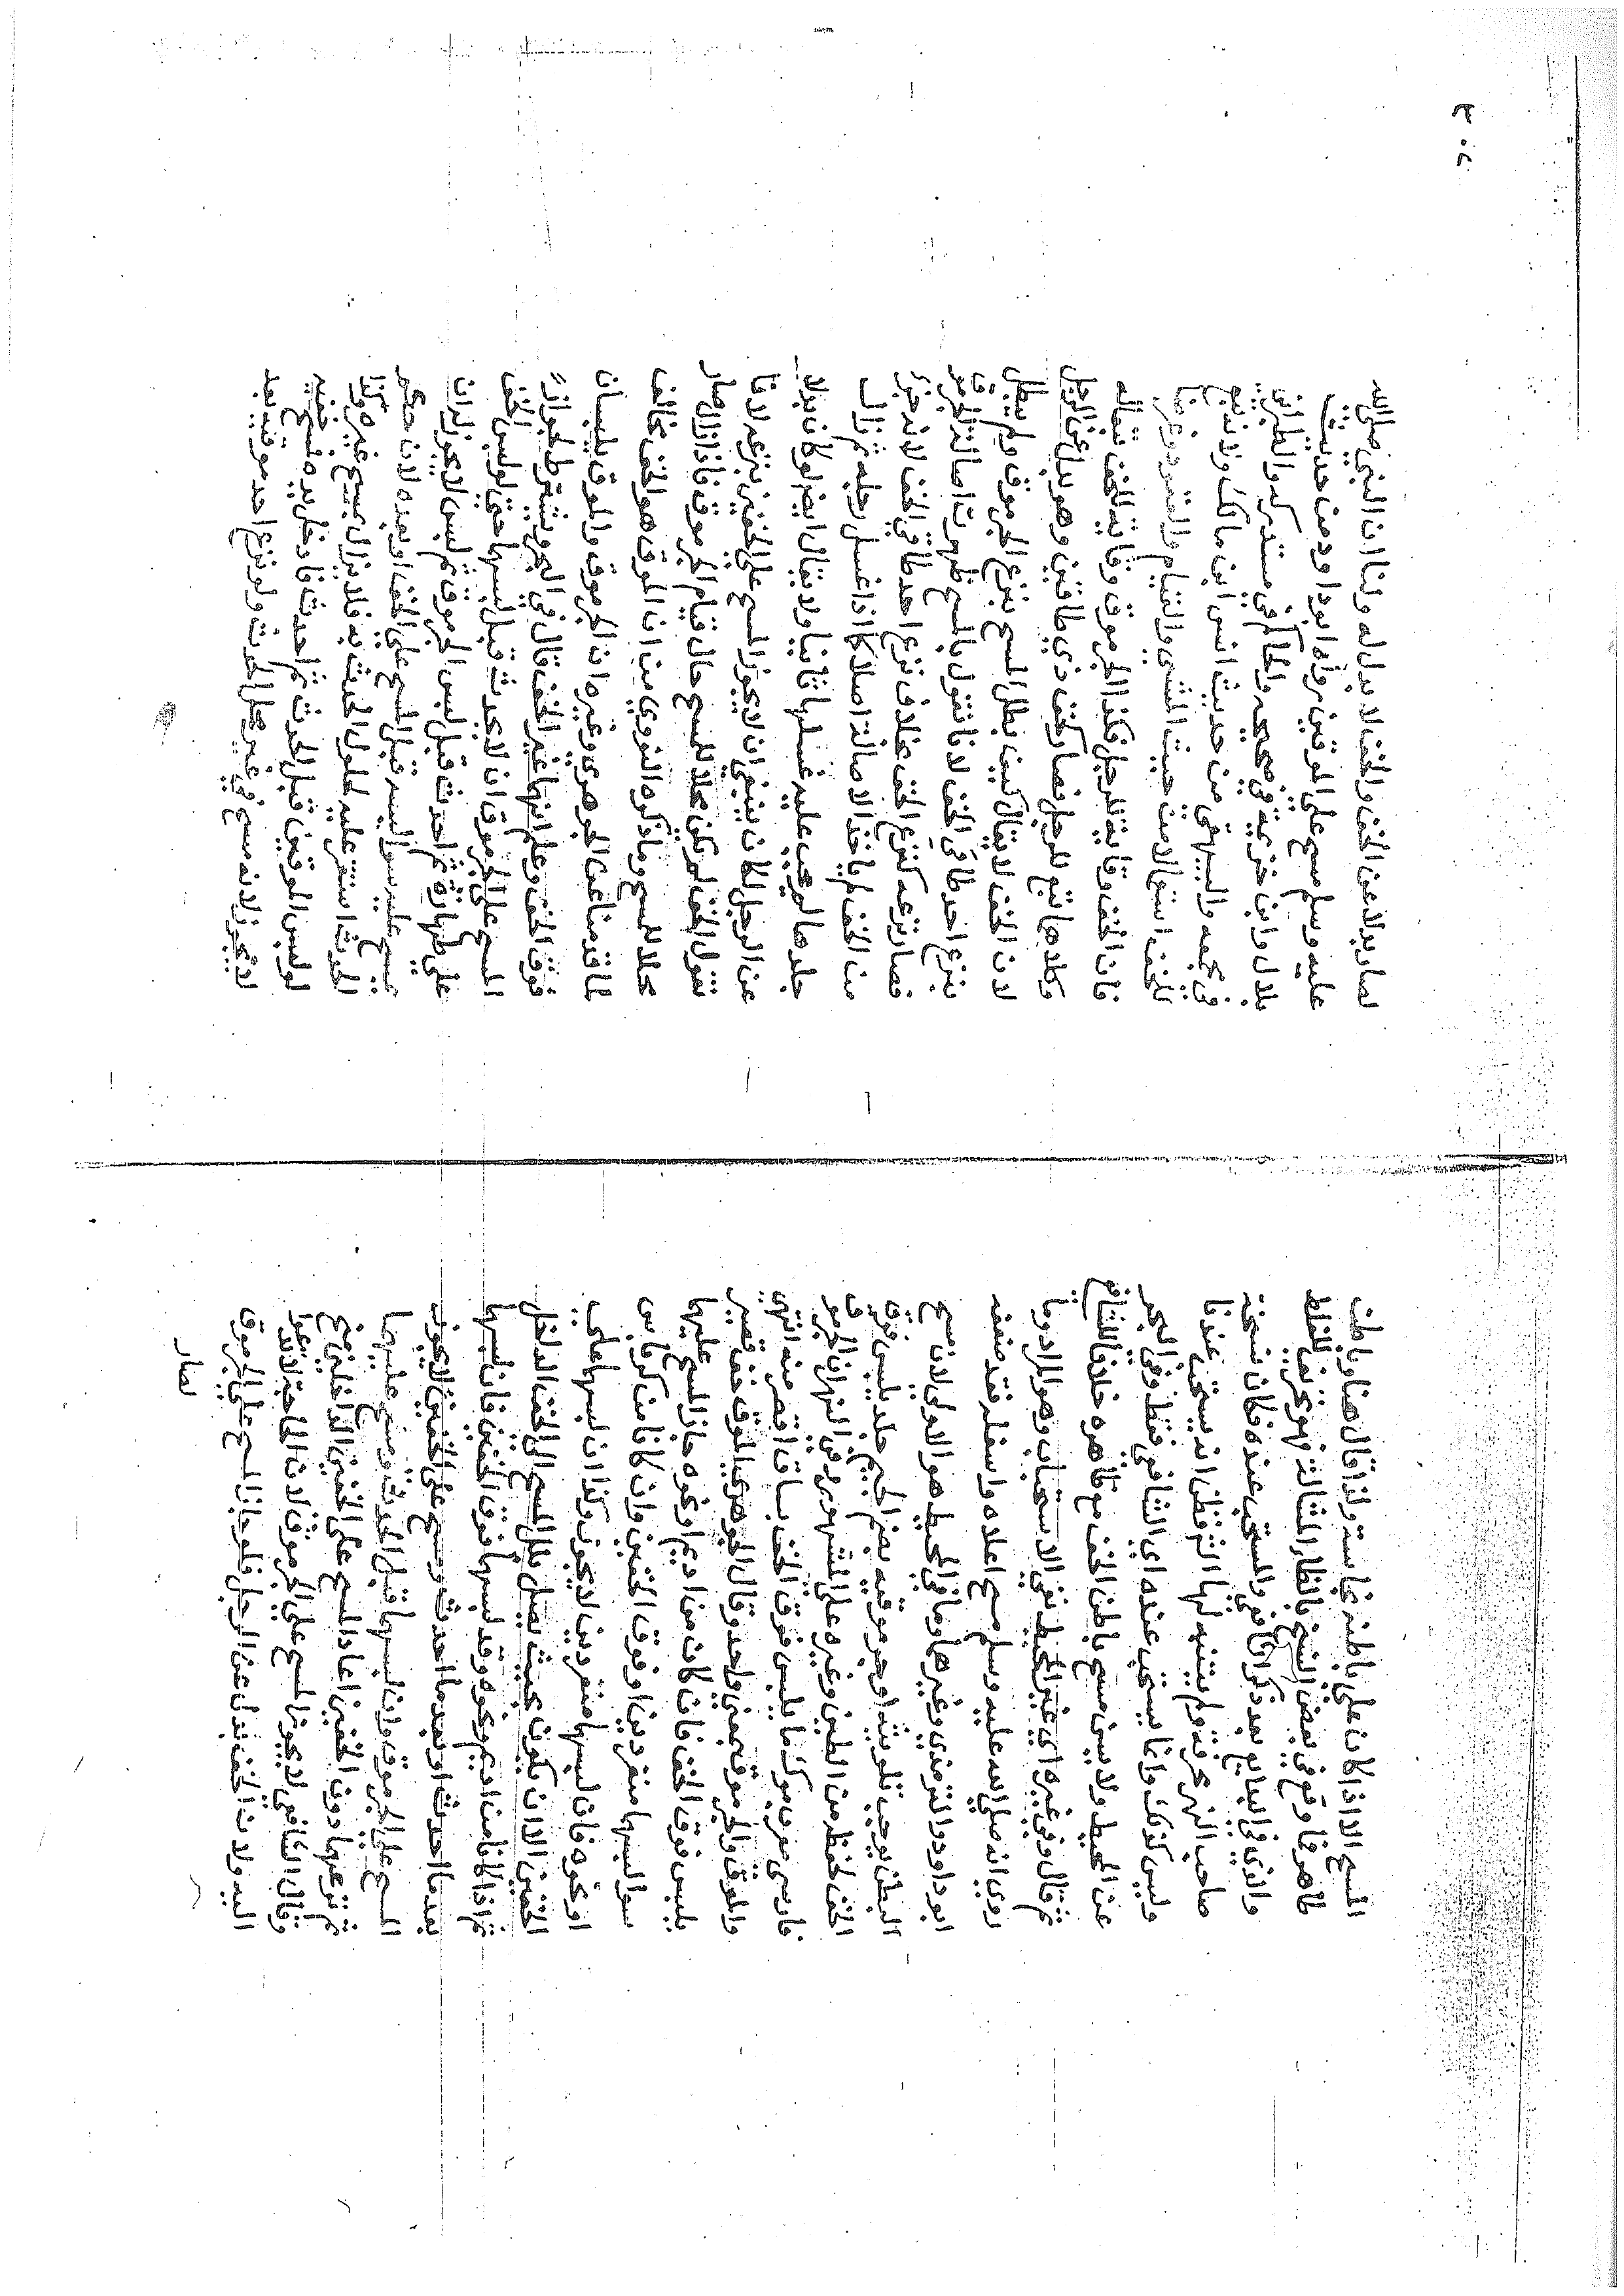 المسح الا اذا كان على باطنه نجاسة ولذا قال هنا وباطن
طاهر فما وقع في بعض النسخ بالظاء المشالة فهو تحريف للغلط
والذي في البدايع بعد ذكر الشافعي والمستحب عنده فكان نسخة
صاحب النهر محرفة ولم يتنبه لها التفطن انه يستحب عندنا
وليس كذلك وانما يستحب عنده اي الشافعي فقط وفي البحر
عن المحيط ولا يسن مسح باطن الخف مع ظاهره خلافا للشافعي
ثم قال وفي غيره اي غير المحيط نفي الاستحباب وهو المراد وما
روي انه صلى الله عليه وسلم مسح اعلاه واسفله فقد ضعفه
ابو داود والترمذي وغيرهما وما في المحيط هو الاولى لان مسح
الباطن يوجب تلويثه او جرموقيه بضم الجيم جلد يلبس فوق
الخف لحفظه من الطين وغيره على المشهور وفي النهر ان الجرموق
فارسي معرب موكه ما يلبس فوق الخف بساق اقصر منه انتهى
والموق والجرموق بمعنى واحد وقال الجوهري الموق خف قصير
يلبس فوق الخف فان كان من اديم او نحوه جاز المسح عليها
سوا لبسهما منفردين او فوق الخفين وان كانا من كرباس
او نحوه فان لبسهما منفردين لا يجوز وكذا ان لبسهما على
الخفين الا ان يكون بحيث يصل بلل المسح الى الخف الداخل
ثم اذا كانا من اديم او نحوه وقد لبسهما فوق الخفين فان لبسهما
بعد ما احدث او بعد ما احدث ومسح على الخفين لا يجوز
المسح على الجرموق وان لبسهما قبل الحدث ومسح عليهما
ثم نزعهما دون الخفين اعاد المسح على الخفين الداخلين
وقال الشافعي لا يجوز المسح على الجرموق لان الحاجة لا تدعو
اليه ولان الخف بدل عن الرجل فلو جاز المسح على الجرموق
لصار
لصار بدلا عن الخف والخف لا بدل له ولنا ان النبي صلى الله
عليه وسلم مسح على الموقين رواه ابو داود من حديث
بلال وابن خزيمة في صحيحه والحاكم في مستدركه والطبراني
في معجمه والبيهقي من حديث انس ابن مالك ولانه تبع
للخف استعمالا من حيث المشي والقيام والقعود وغرضا
فان الخف وقاية للرجل فكذا الجرموق وقاية للخف تبعا له
وكلاهما تبع للرجل فصار كخف ذي طاقين وهو بدل عن الرجل
لان الخف لا يقال كيف بطل المسح بنزع الجرموق ولم يبطل
بنزع احد طاقي الخف لانا نقول بالمسح ظهرت اصالة الجرموق
فصار نزعه كنزع الخف بخلاف نزع احد طاقي الخف لانه جزء
من الخف لم ياخذ الاصالة اصلا كما اذا غسل رجله ثم ازال
جلدها لم يجب عليه غسلها ثانيا ولا يقال ايضا لو كان بدلا
عن الرجل لكان ينبغي ان لا يجوز المسح على الخفين بنزعه لانا
نقول الخف لم يكن محلا للمسح حال قيام الجرموق فاذا زال صار
محلا للمسح وما ذكره النووي من ان الموق هو الخف مخالف
لما قدمنا عن الجوهري وغيره ان الجرموق والموق يلبسان
فوق الخف وعلم انهما غير الخف قال في البحر ويشترط لجواز
المسح على الجرموق ان لا يحدث قبل لبسهما حتى لو لبس الخف
على طهارة ثم احدث قبل لبس الجرموق ثم لبس لا يجوز له ان
يمسح عليه سوا لبسه قبل المسح على الخف او بعده لان حكم
الحدث استقر عليه لحلول الحدث به فلا يزال بمسح غيره وكذا
لو لبس الموقين قبل الحدث ثم احدث فادخل يده فمسح خفيه
لا يجوز لانه مسح في غير محل الحدث ولو نزع احد موقيه بعد